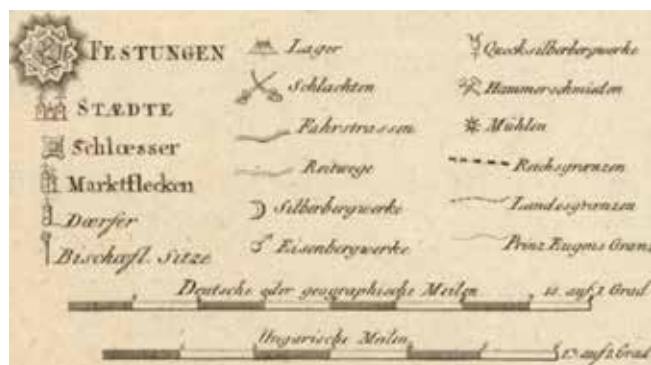 FESTUNGEN
STÆDTE
Schlœsser
Marktflecken
Dœrfer
Bischœfl. Sitze
Lager
Schlachten
Fahrstrassen
Reitwege
Silberbergwerke
Eisenbergwerke
Quecksilberbergwerke
Hammerschmieden
Mühlen
Reichsgrænzen
Landesgrænzen
Prinz Eugens Grænz
Deutsche oder geographische Meilen auf 1 Grad
Ungarische Meilen auf 1 Grad